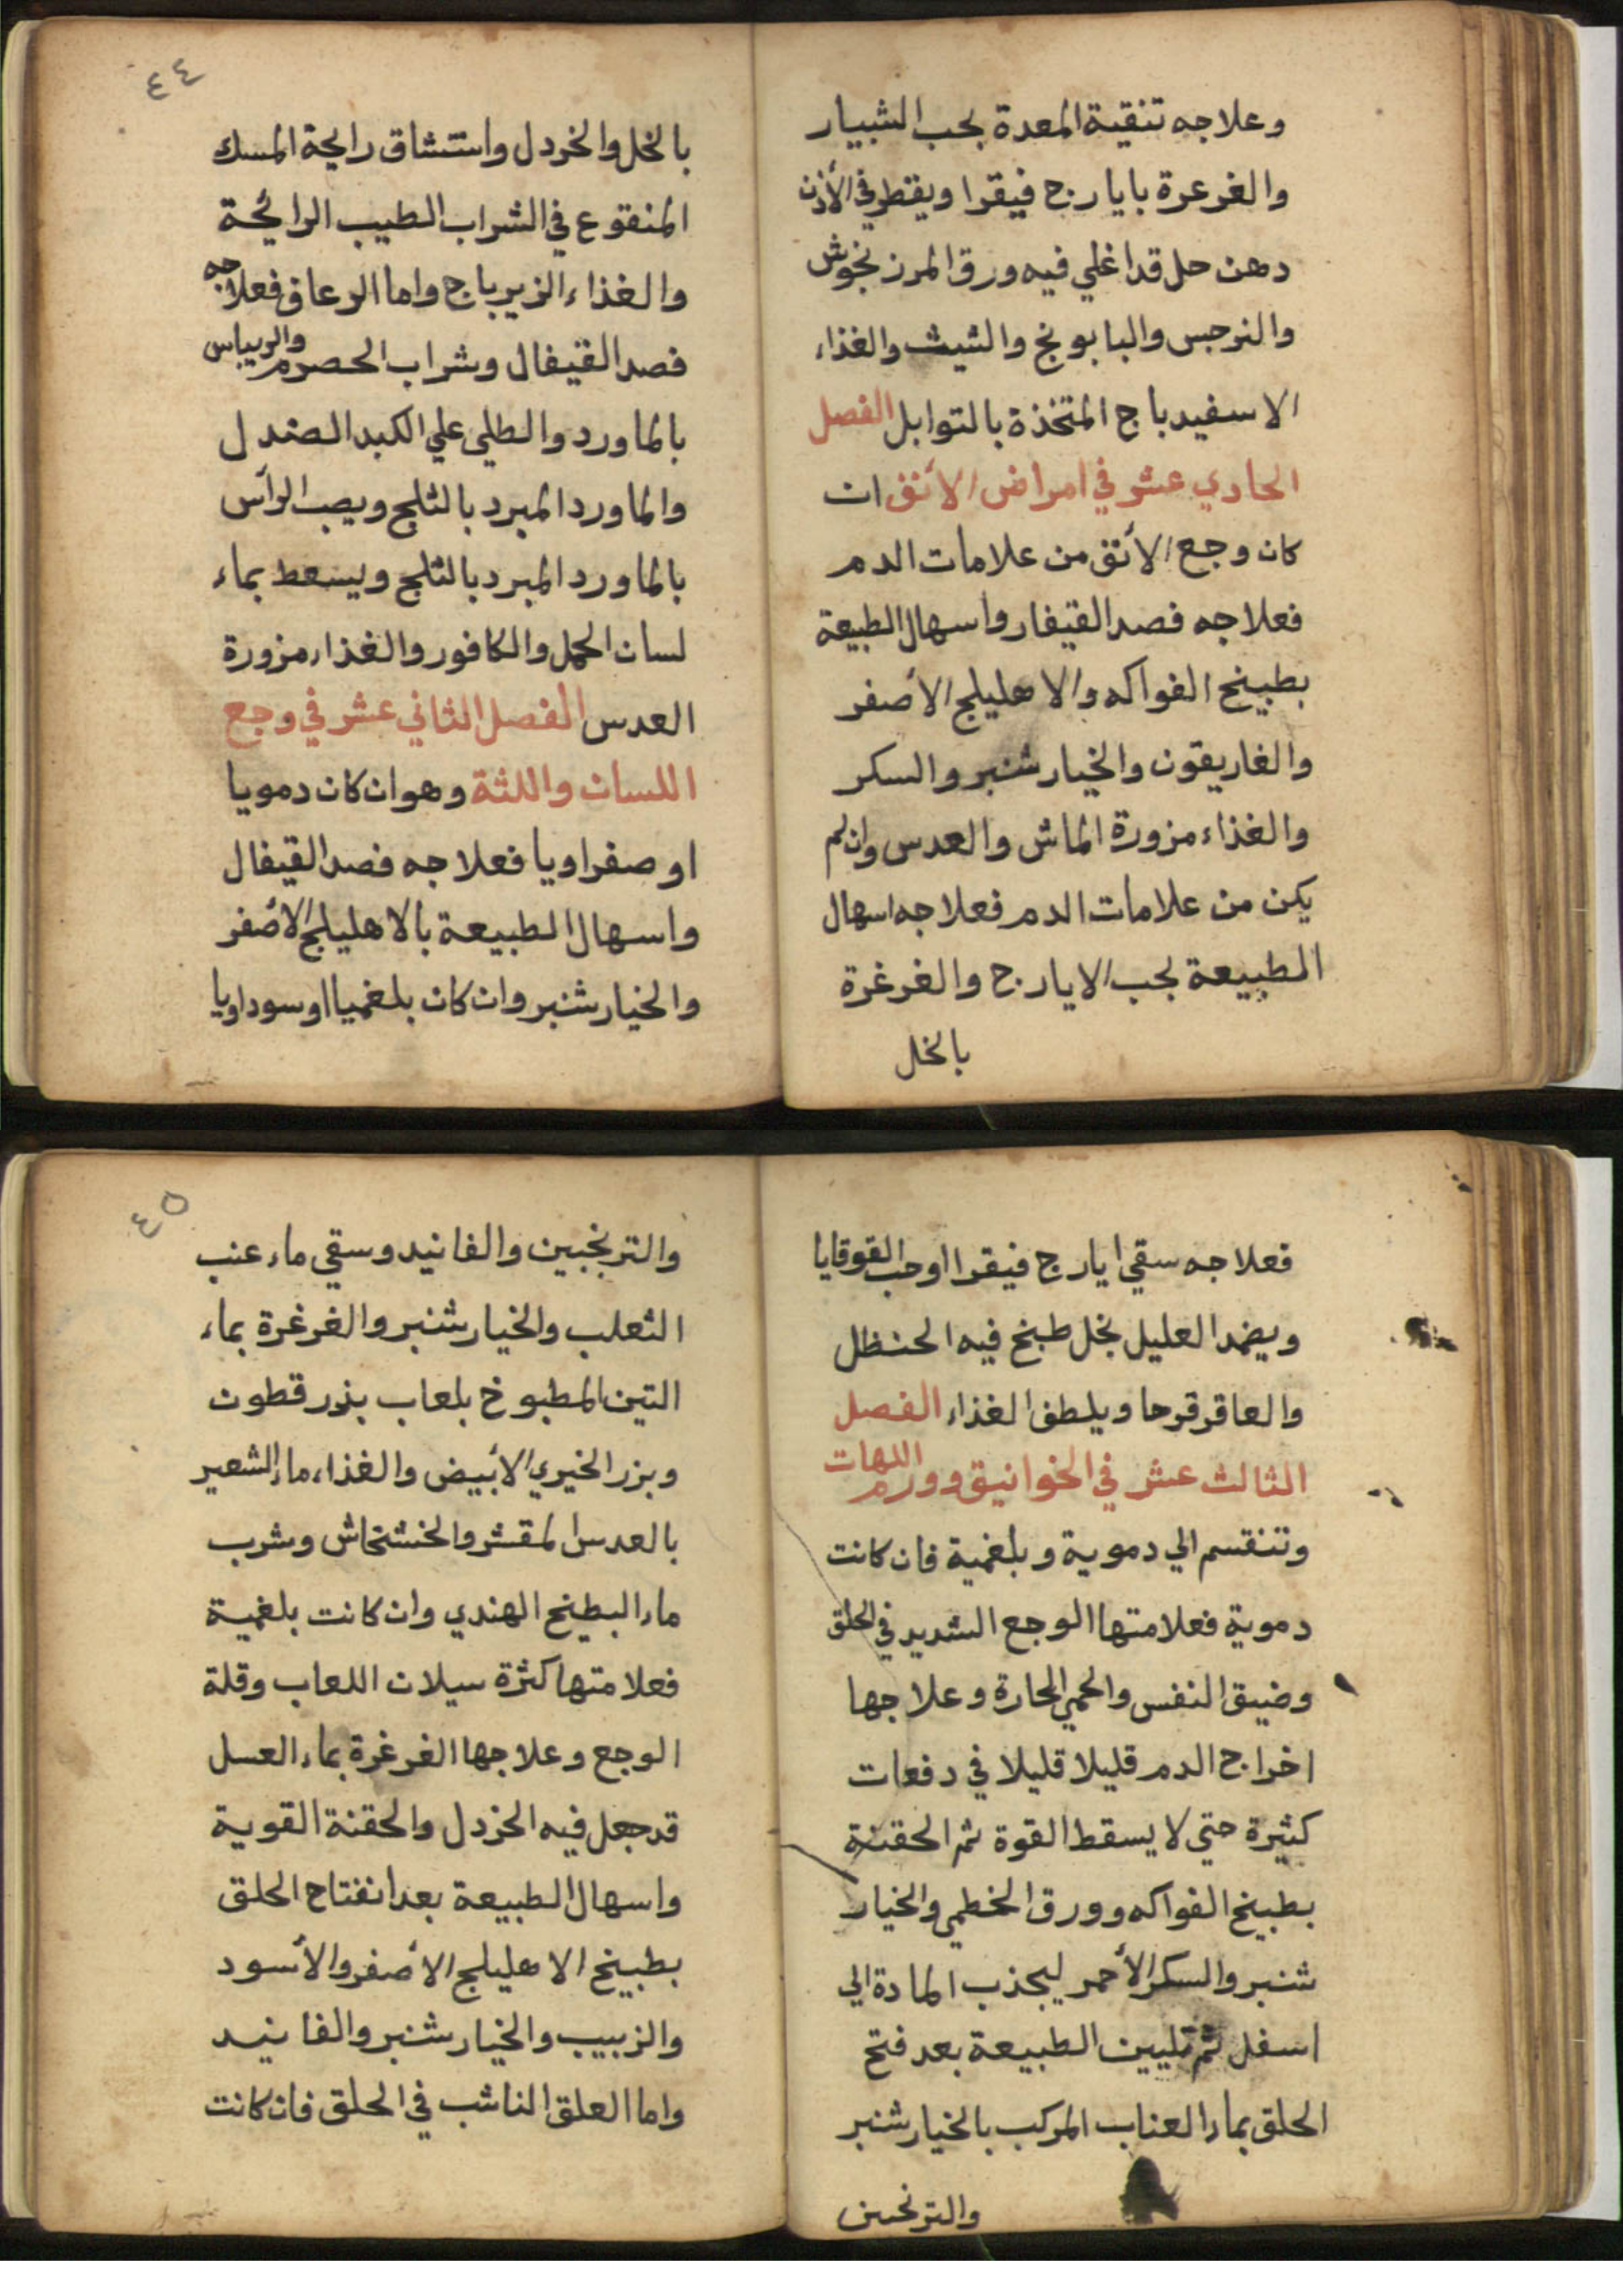 وعلاجه تنقية المعدة بحب الشبيار
والغرعرة بايارج فيقرا ويقطر في الأذن
دهن حل قد اغلي فيه ورق المرزنجوش
والنرجس والبابونج والشبث والغذاء
الاسفيدباج المتخذة بالتوابل الفصل
الحادي عشر في امراض الأنف ان
كان وجع الأنف من علامات الدم
فعلاجه فصد القيفار واسهال الطبيعة
بطبيخ الفواكه والاهليلج الأصفر
والغاريقون والخيار شنبر والسكر
والغذاء مزورة الماش والعدس وان لم
يكن من علامات الدم فعلاجه اسهال
الطبيعة بحب الايارج والغرغرة
بالخل
٤٤
بالخل والخردل واستنشاق رايحة المسك
المنقوع في الشراب الطيب الرائحة
والغذاء الزيرباج واما الرعاف فعلاجه
فصد القيفال وشراب الحصرم والريباس
بالماورد والطلي علي الكبد الصندل
والماورد المبرد بالثلج ويصب الرأس
بالماورد المبرد بالثلج ويسعط بماء
لسان الحمل والكافور والغذاء مزورة
العدس الفصل الثاني عشر في وجع
اللسان واللثة وهو ان كان دمويا
او صفراويا فعلاجه فصد القيفال
واسهال الطبيعة بالاهليلج الأصفر
والخيار شنبر وان كان بلغميا او سوداويا
فعلاجه سقي ايارج فيقرا او حب القوقايا
ويضمد العليل بخل طبخ فيه الحنظل
والعاقرقرحا ويلطف الغذاء الفصل
الثالث عشر في الخوانيق وورم اللهات
وتنقسم الي دموية وبلغمية فان كانت
دموية فعلامتها الوجع الشديد في الحلق
وضيق النفس والحمي الحارة وعلاجها
اخراج الدم قليلا قليلا في دفعات
كثيرة حتي لا يسقط القوة ثم الحقنة
بطبيخ الفواكه وورق الخطمي والخيار
شنبر والسكر الأحمر ليجذب المادة الي
اسفل ثم تليين الطبيعة بعد فتح
الحلق بماء العناب المركب بالخيار شنبر
والترنجبين
٤٥
والترنجبين والفانيد وسقي ماء عنب
الثعلب والخيار شنبر والغرغرة بماء
التين المطبوخ بلعاب بزر قطون
وبزر الخيري الأبيض والغذاء ماء الشعير
بالعدس المقشر والخشخاش وشرب
ماء البطيخ الهندي وان كانت بلغمية
فعلامتها كثرة سيلان اللعاب وقلة
الوجع وعلاجها الغرغرة بماء العسل
قد جعل فيه الخردل والحقنة القوية
واسهال الطبيعة بعد انفتاح الحلق
بطبيخ الاهليلج الأصفر والأسود
والزبيب والخيار شنبر والفانيد
واما العلق الناشب في الحلق فان كانت